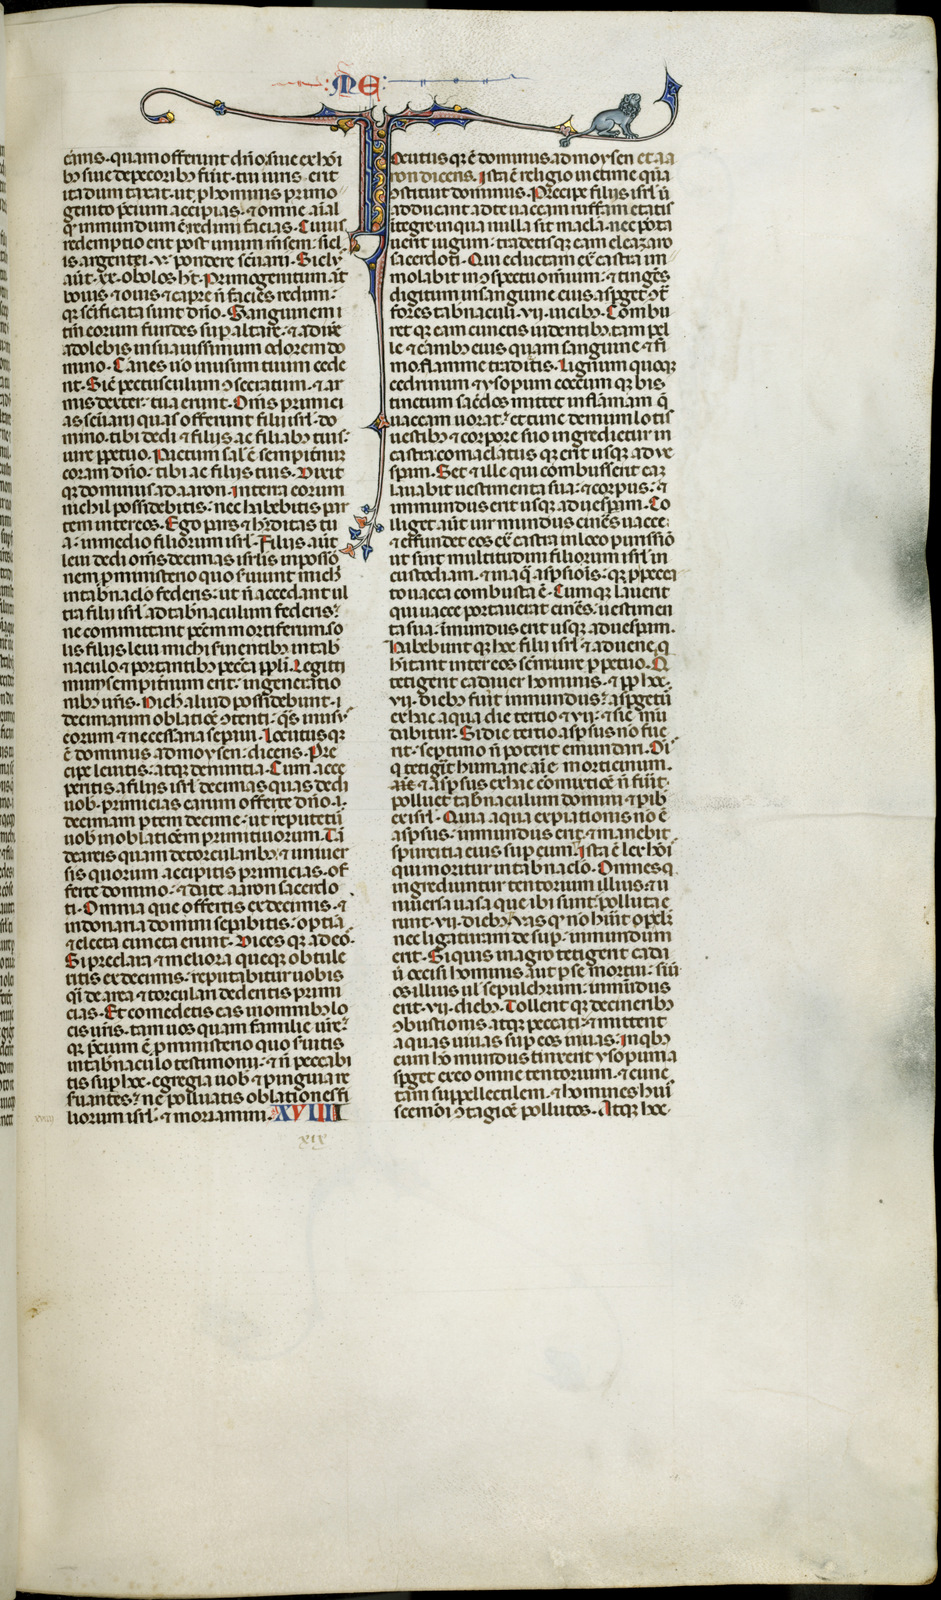 ME
carnis· quam offerunt dño· siue ex hõi
bꝫ siue de pecoribꝫ fuit· tui iuris erit
ita dum taxat· ut ꝓ hominis primo
genito p̃cium accipias· ⁊ omne aĩal
q̃ inmundum ẽ redimi facias· Cuius
redemptio erit post unum m̃sem· sicl̃
is argenteis· v· pondere sc̃uarii· Siclꝰ
aũt· xx· obolos hꝫ· Primogenitum aũt
bouis· ⁊ ouis ⁊ capre ñ facies redimi·
q̃ sc̃ificata sunt dño· Sanguinem
tm̃ eorum fundes sup altare· ⁊ adipe
adolebis in suauissimum odorem do
mino· Carnes ũo in usum tuum cede
nt· Sic̃ pectusculum ↄsecratum· ⁊ ar
mus dexter· tua erunt· Om̃s primici
as sc̃uarii quas offerunt filii isrl̃· do
mino· tibi dedi ⁊ filiis ac filiabꝫ tuis·
iure ꝑpetuo· Pactum sal̃ ẽ sempit̃nũ
coram dño· tibi ac filiis tuis· Dixit
qꝫ dominus ad aaron· In terra eorum
nichil possidebitis· nec habebitis par
tem inter eos· Ego pars ⁊ h̃ditas tu
a· in medio filiorum isrl̃· Filiis aũt
leui dedi om̃s decimas isrl̃is in possõ
nem ꝓ ministerio quo s̃uiunt mich̃
in tab̃naclo federis· ut ñ accedant ul
tra filii isrl̃ ad tab̃naculum federis·
ne committant pc̃cm mortiferum· so
lis filiis leui michi s̃uientibꝫ in tab̃
naculo· ⁊ portantibꝫ pc̃cã ppl̃i· Legitti
mum sempit̃num erit· in generatio
nibꝫ ur̃is· Nich̃ aliud possidebunt·
decimarum oblatiõe ↄtenti· q̃s in usꝰ
eorum ⁊ necessaria separaui· Locutusqꝫ
ẽ dominus ad moysen· dicens· Pre
cipe leuitis· atqꝫ denuntia· Cum acce
peritis a filiis isrl̃ decimas quas dedi
uob̃· primicias earum offerte dño·
decimam ꝑtem decime· ut reputetur
uob̃ in oblatiõem primitiuorum· Tã
de areis quam de torcularibꝫ· ⁊ uniuer
sis quorum accipitis primicias· of
ferte domino· ⁊ date aaron sacerdo
ti· Omnia que offertis ex decimis· ⁊
in donaria domini sepabitis· optiã
⁊ electa cuncta erunt· Dices qꝫ ad eos·
Si preclara ⁊ meliora queqꝫ obtule
ritis ex decimis· reputabitur uobis
q̃i de area ⁊ torculari dederitis primi
cias· Et comedetis eas in omnibꝫ lo
cis ur̃is· tam uos quam familie ur̃e·
qꝫ p̃cium ẽ ꝓ ministerio quo s̃uitis
in tab̃naculo testimonii· ⁊ ñ peccabi
tis sup hoc· egregia uob̃ ⁊ pinguia re
seruantes· ne polluatis oblationes fi
liorum isrl̃· ⁊ moriamini· XVIIII
xix
Locutus qꝫ ẽ dominus ad moysen et aa
ron dicens· Ista ẽ religio uictime quã
ↄstituit dominus· Precipe filiis isrl̃ ut
adducant ad te uaccam ruffam etatis
ĩtegre· in qua nulla sit macla· nec porta
uerit iugum· tradetisqꝫ eam eleazaro
sacerdoti· Qui eductam ex̃ castra im
molabit in ↄspectu omnium· ⁊ tinges
digitum in sanguine eius· aspget ↄt̃
fores tab̃naculi· vii· uicibꝫ· Combu
ret qꝫ eam cunctis uidentibꝫ· tam pel
le ⁊ carnibꝫ eius quam sanguine ⁊ fi
mo flamme traditis· Lignum quoqꝫ
cedrinum ⁊ ysopum coccum qꝫ bis
tinctum sac̃dos mittet in flãmam q̃
uaccam uorat· et tunc demum lotis
uestibꝫ ⁊ corpore suo ingredietur in
castra· comaclatus qꝫ erit usqꝫ ad ue
spam· Set ⁊ ille qui combusserit eaꝫ
lauabit uestimenta sua· ⁊ corpus· ⁊
inmundus erit usqꝫ ad uespam· Co
lliget aũt uir mundus cineres uacce·
⁊ effundet eos ex̃ castra in loco purissĩo
ut sint multitudini filiorum isrl̃ in
custodiam· ⁊ in aq̃ aspsiõis· qꝫ ꝓ pecca
to uacca combusta ẽ· Cumqꝫ lauerit
qui uacce portauerat cineres· uestimen
ta sua· ĩmundus erit usqꝫ ad uespam·
Habebunt qꝫ hoc filii isrl̃· ⁊ aduene q̃
h̃itant inter eos· sc̃m iure ꝑpetuo· Q̃
tetigerit cadauer hominis· ⁊ ꝓpꝫ hoc·
vii· diebꝫ fuit inmundus· aspgetur
ex hac aqua die tertio ⁊ vii· ⁊ sic̃ mũ
dabitur· Si die tertio aspsus no fue
rit· septimo ñ poterit emundari· Oĩ
q̃ tetigit humane aĩe morticinum·
⁊ aspsus ex hac comixtiõe ñ fuit·
polluet tab̃naculum domini ⁊ pib̃
ex isrl̃· Quia aqua expiationis nõ ẽ
aspsus· inmundus erit· ⁊ manebit
spurcitia eius sup eum· Ista ẽ lex hõis
qui moritur in tab̃naclo· Omnesqꝫ
ingrediuntur tentorum illius· ⁊ u
niuersa uasa que ibi sunt· polluta e
runt· vii· diebꝫ· Vas q̃ nõ h̃uit opcl̃ꝫ
nec ligaturam desup· inmundum
erit· Si quis in agro tetigerit cada
ũ occisi hominis aut ꝑ se mortui· siũ
os illius ul̃ sepulchrum· inmundus
erit· vii· diebꝫ· Tollent qꝫ de cineribꝫ
ↄbustionis atqꝫ peccati· ⁊ mittent
aquas uiuas sup eos in uas· In qibꝫ
cum hõ mundus tinxerit ysopum a
spget ex eo omne tentorum· ⁊ cunc
tam suppellectilem· ⁊ homines hui
scemõi ↄtagiõe pollutos· Atqꝫ hoc